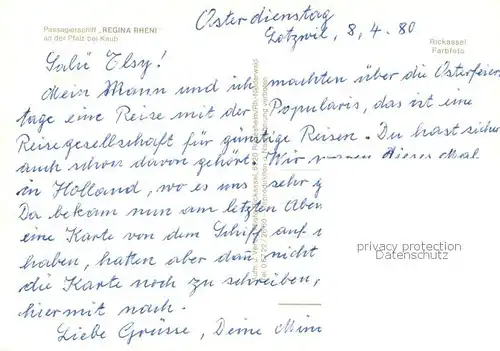 Passagierschiff „REGINA RHENI"
an der Pfalz bei Kaub
Osterdienstag
Lotzwil, 8, 4. 80
Rickassel
Farbfoto
Salü Elsy!
Mein Mann und ich machten über die Osterfeier
tage eine Reise mit der Popularis, das ist eine
Reisegesellschaft für günstige Reisen. Du hast sicher
auch schon davon gehört. Wir waren dieses Mal
in Holland, wo es uns sehr g
Da bekam nun am letzten Aben
eine Karte von dem Schiff auf
haben, hatten aber dann nicht
die Karte noch zu schreiben,
hiermit nach.
Liebe Grüsse, Deine Mim
privacy protection
Datenschutz